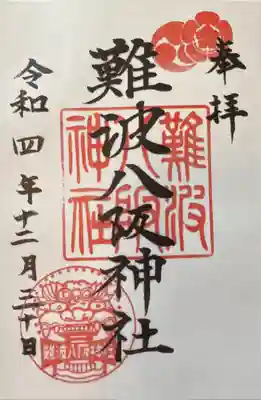 奉拝
難波八阪神社
難波
八阪
神社
難波八阪神社
令和四年十二月三十日